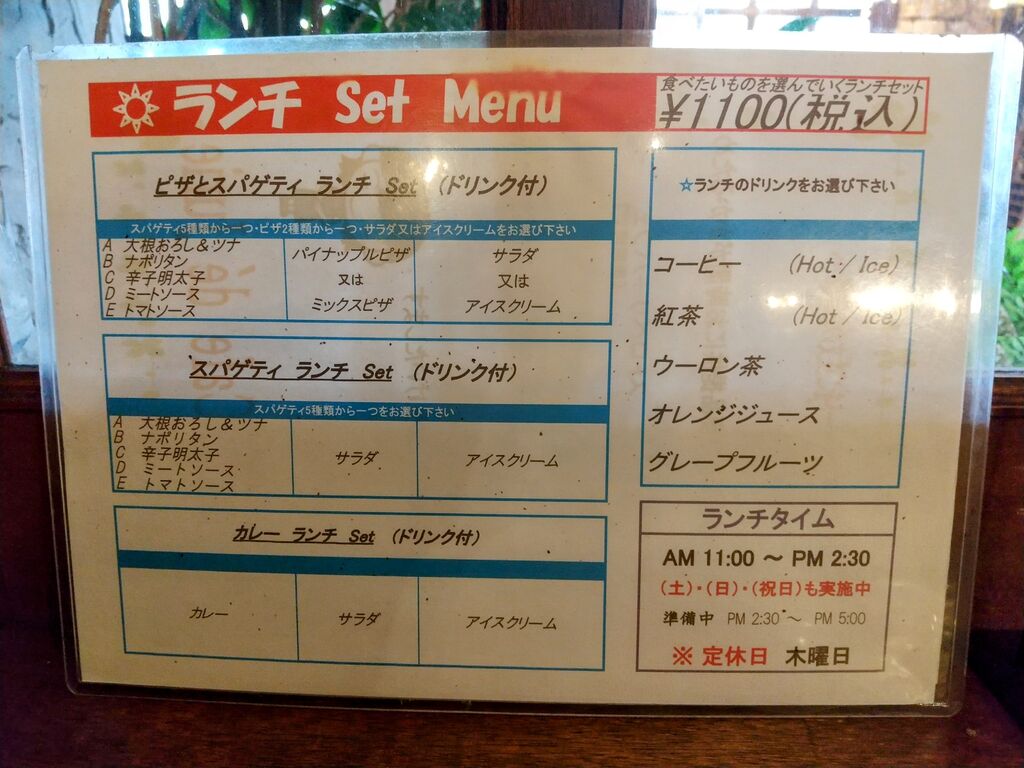 ランチ Set Menu
食べたいものを選んでいくランチセット
¥1100(税込)
ピザとスパゲティ ランチ Set (ドリンク付)
スパゲティ5種類から一つ・ピザ2種類から一つ・サラダ又はアイスクリームをお選び下さい
A 大根おろし&ツナ
B ナポリタン
C 辛子明太子
D ミートソース
E トマトソース
パイナップルピザ
又は
ミックスピザ
サラダ
又は
アイスクリーム
スパゲティ ランチ Set (ドリンク付)
スパゲティ5種類から一つをお選び下さい
A 大根おろし&ツナ
B ナポリタン
C 辛子明太子
D ミートソース
E トマトソース
サラダ
アイスクリーム
カレー ランチ Set (ドリンク付)
カレー
サラダ
アイスクリーム
☆ランチのドリンクをお選び下さい
コーヒー (Hot / Ice)
紅茶 (Hot / Ice)
ウーロン茶
オレンジジュース
グレープフルーツ
ランチタイム
AM 11:00 ～ PM 2:30
(土)・(日)・(祝日)も実施中
準備中 PM 2:30 ～ PM 5:00
※ 定休日 木曜日